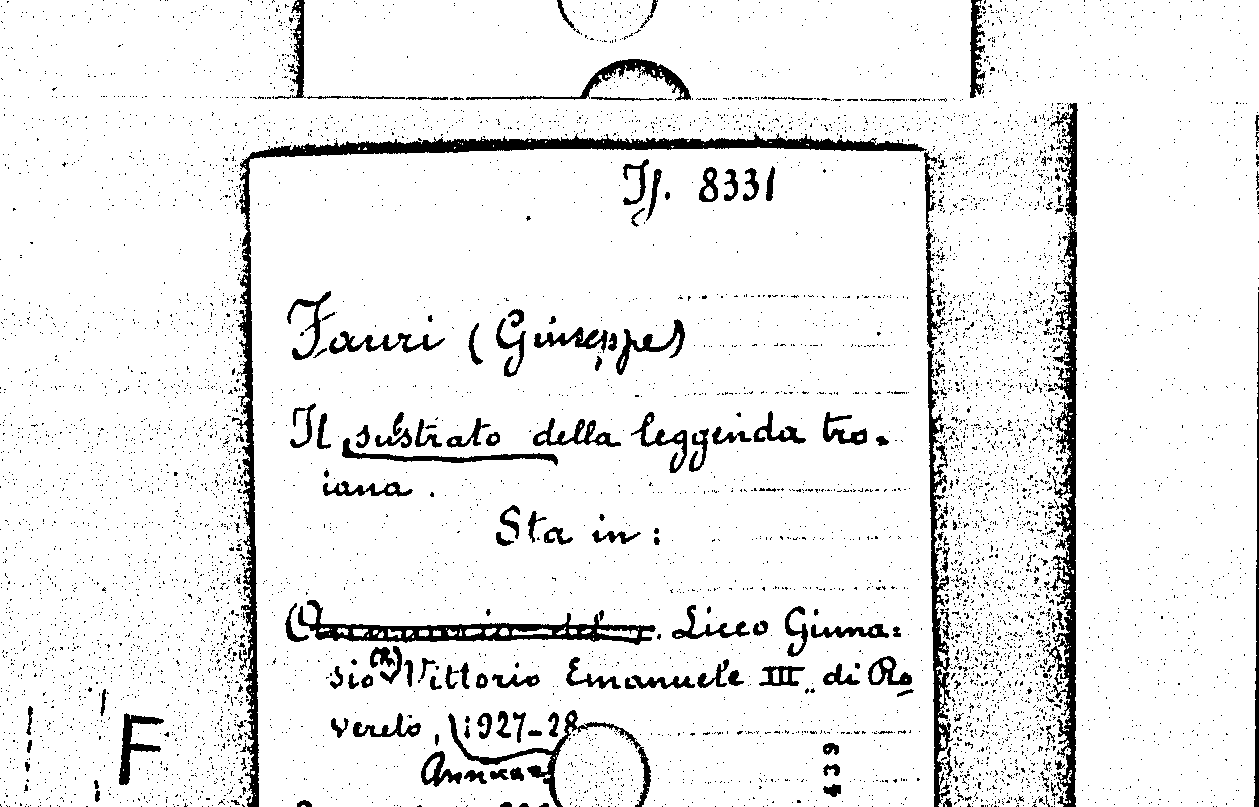 If. 8331
Fauri (Giuseppe)
Il substrato della leggenda tro-
iana.
Sta in:
Annuario del r. Liceo Ginna=
sio (R) Vittorio Emanuele III di Ro
vereto, 1927-28
Annuar
F
439